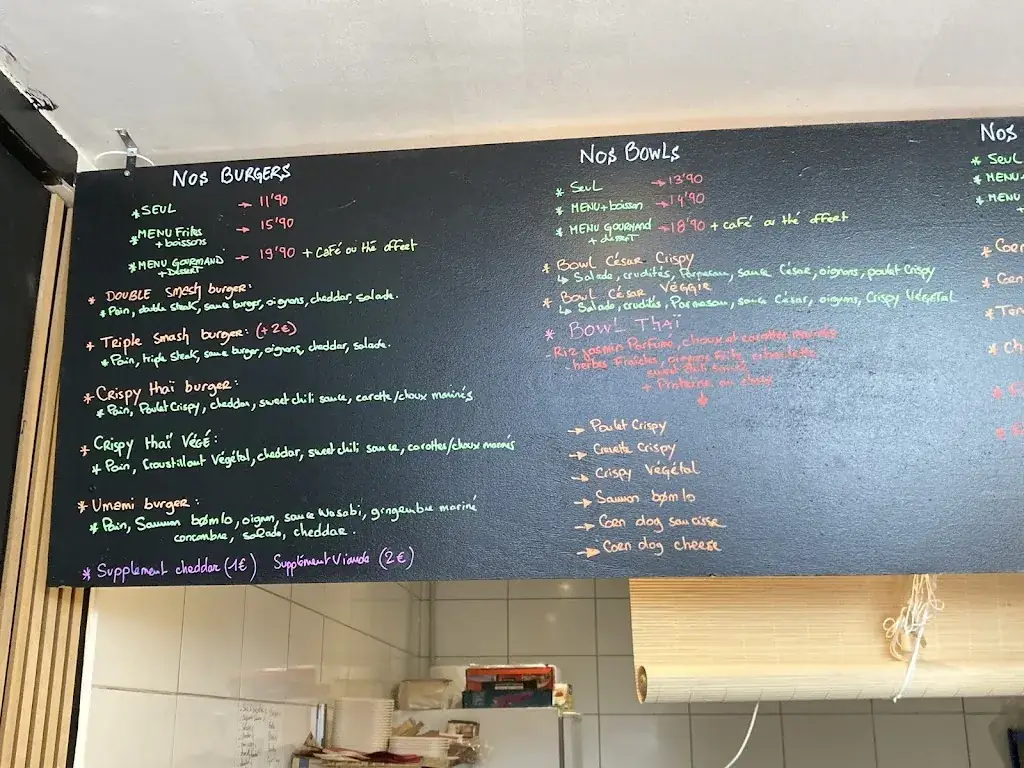 NOS BURGERS
* SEUL → 11'90
* MENU Frites + boissons → 15'90
* MENU GOURMAND + DESSERT → 19'90 + café ou thé offert
* DOUBLE Smash burger:
* Pain, double steak, sauce burger, oignons, cheddar, salade.
* Triple Smash burger: (+2€)
* Pain, triple steak, sauce burger, oignons, cheddar, salade.
* Crispy thaï burger:
* Pain, Poulet Crispy, cheddar, sweet chili sauce, carotte/choux marinés
* Crispy thaï VÉGÉ:
* Pain, Croustillant Végétal, cheddar, sweet chili sauce, carottes/choux marinés
* Umami burger:
* Pain, Saumon bømlo, oignon, sauce Wasabi, gingembre mariné
concombre, salade, cheddar.
* Supplement cheddar (1€) Supplément Viande (2€)
NOS BOWLS
* SEUL → 13'90
* MENU + boisson → 14'90
* MENU GOURMAND + dessert → 18'90 + café ou thé offert
* Bowl César Crispy
↳ Salade, crudités, Parmesan, sauce César, oignons, poulet Crispy
* Bowl César VÉGGIE
↳ Salade, crudités, Parmesan, sauce César, oignons, Crispy VÉGÉTAL
* BOWL THAÏ
Riz jasmin Parfumé, choux et carottes marinés
herbes Fraîches, oignons frits, ciboulette
sweet chili sauce
+ Protéine au choix
→ Poulet Crispy
→ Crevette Crispy
→ Crispy Végétal
→ Saumon bømlo
→ Corn dog saucisse
→ Corn dog cheese
NOS
* SEUL
* MENU
* MENU